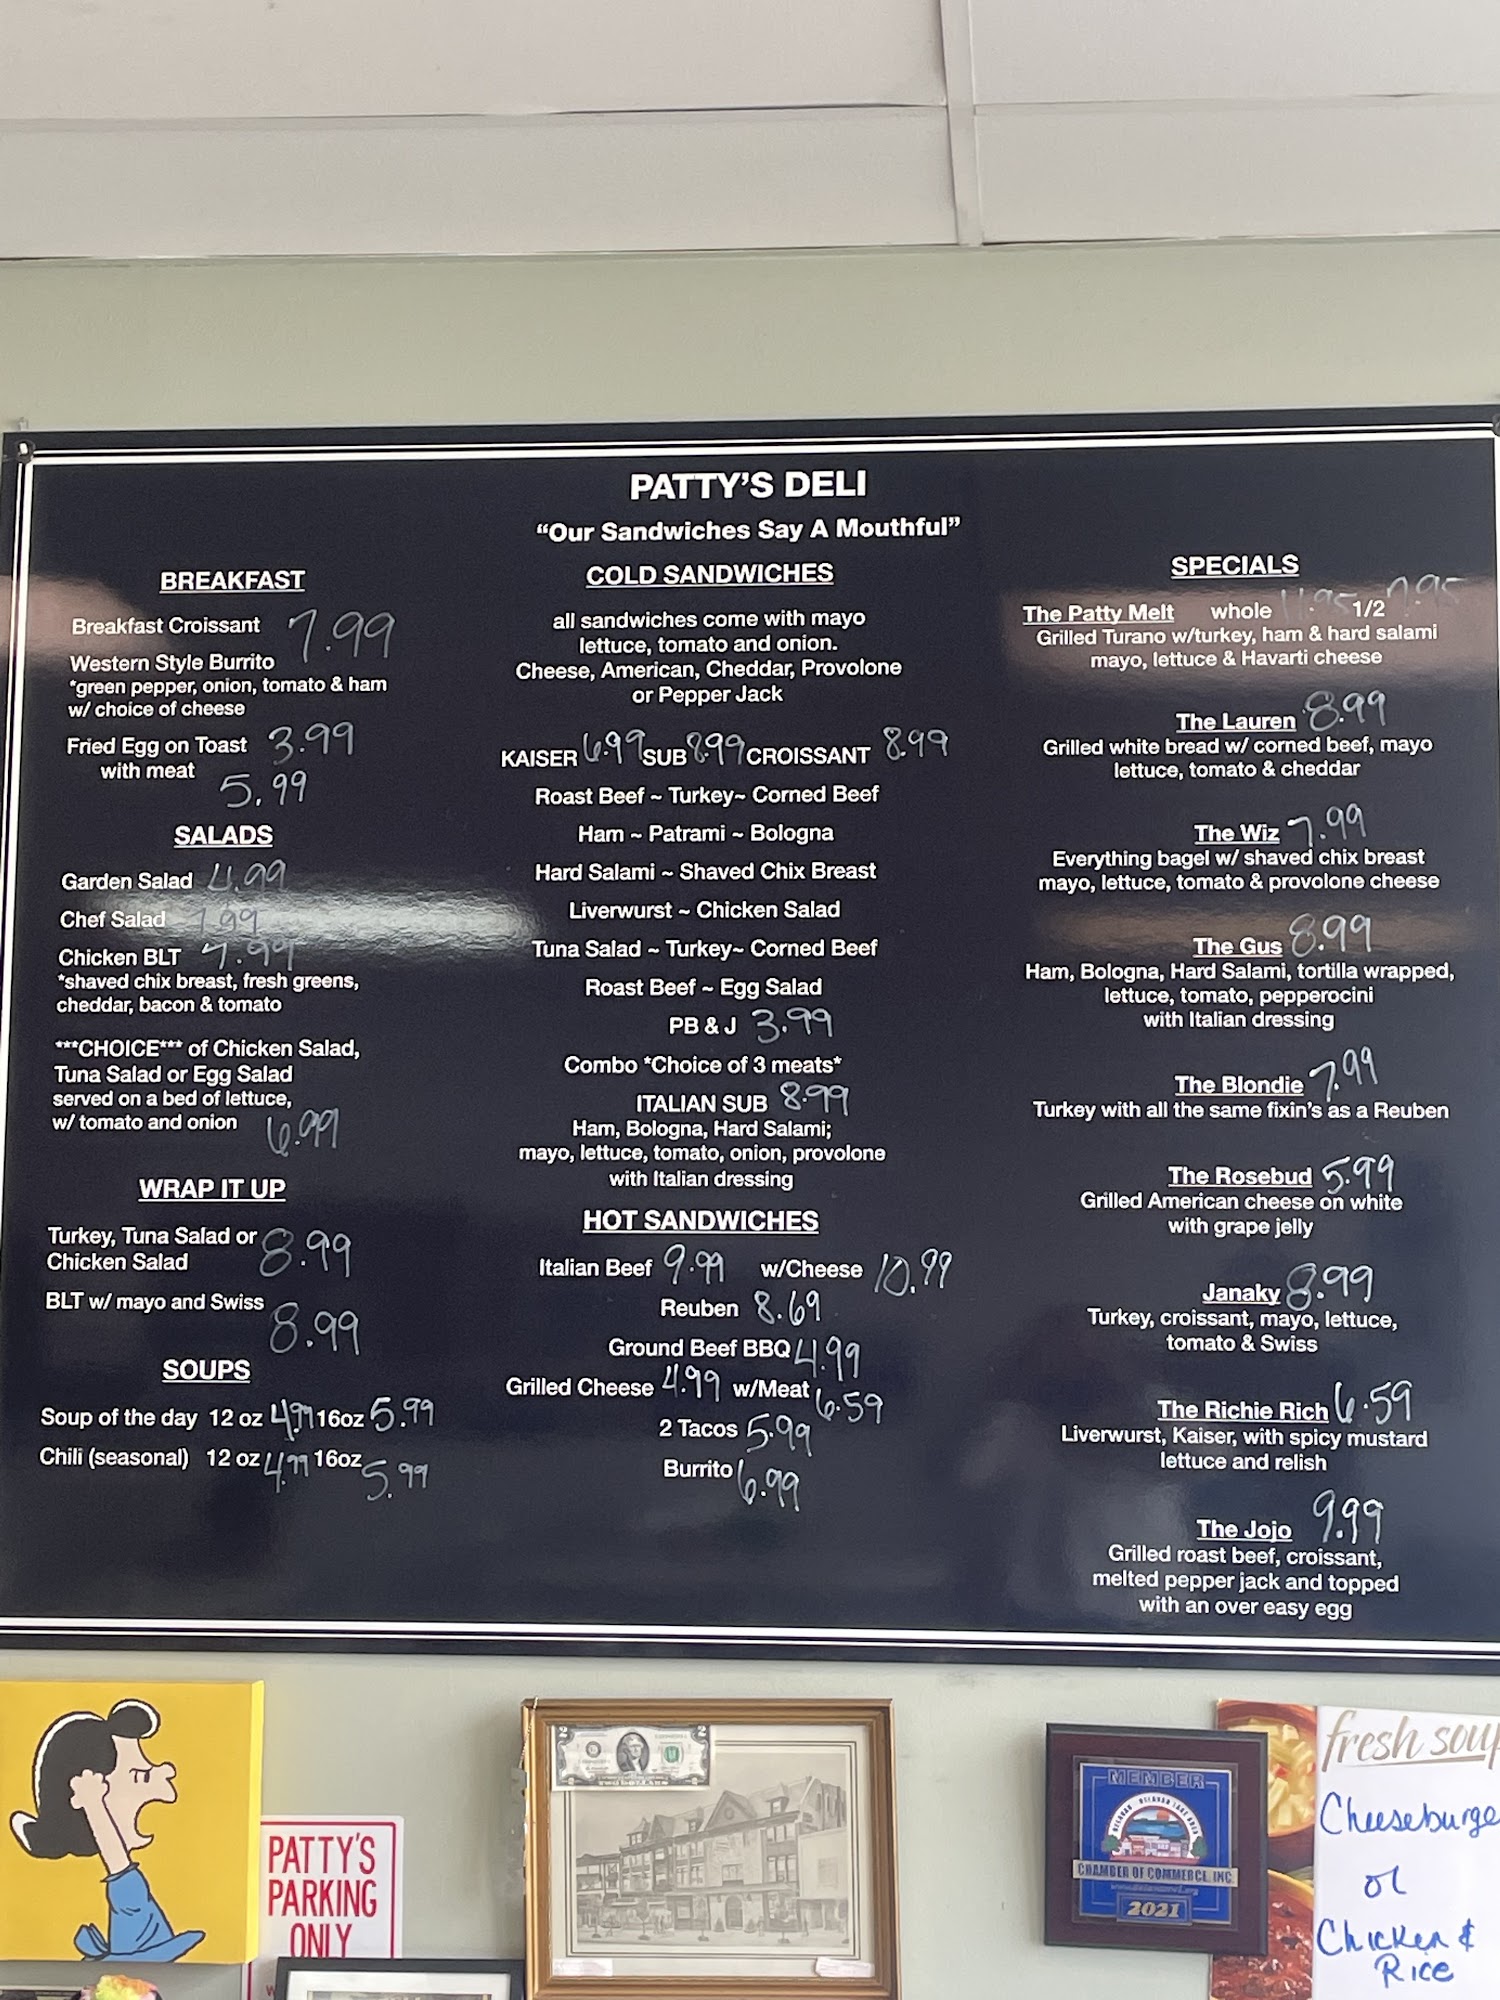 PATTY'S DELI
"Our Sandwiches Say A Mouthful"
BREAKFAST
Breakfast Croissant 7.99
Western Style Burrito
*green pepper, onion, tomato & ham
w/ choice of cheese
Fried Egg on Toast 3.99
with meat
5.99
SALADS
Garden Salad 4.99
Chef Salad 7.99
Chicken BLT 7.99
*shaved chix breast, fresh greens,
cheddar, bacon & tomato
***CHOICE*** of Chicken Salad,
Tuna Salad or Egg Salad
served on a bed of lettuce,
w/ tomato and onion 6.99
WRAP IT UP
Turkey, Tuna Salad or
Chicken Salad 8.99
BLT w/ mayo and Swiss
8.99
SOUPS
Soup of the day 12 oz 4.99 16oz 5.99
Chili (seasonal) 12 oz 4.99 16oz 5.99
COLD SANDWICHES
all sandwiches come with mayo
lettuce, tomato and onion.
Cheese, American, Cheddar, Provolone
or Pepper Jack
KAISER 6.99 SUB 8.99 CROISSANT 8.99
Roast Beef ~ Turkey~ Corned Beef
Ham ~ Patrami ~ Bologna
Hard Salami ~ Shaved Chix Breast
Liverwurst ~ Chicken Salad
Tuna Salad ~ Turkey~ Corned Beef
Roast Beef ~ Egg Salad
PB & J 3.99
Combo *Choice of 3 meats*
ITALIAN SUB 8.99
Ham, Bologna, Hard Salami;
mayo, lettuce, tomato, onion, provolone
with Italian dressing
HOT SANDWICHES
Italian Beef 9.99 w/Cheese 10.99
Reuben 8.69
Ground Beef BBQ 4.99
Grilled Cheese 4.99 w/Meat 6.59
2 Tacos 5.99
Burrito 6.99
SPECIALS
The Patty Melt whole 11.95 1/2 7.95
Grilled Turano w/turkey, ham & hard salami
mayo, lettuce & Havarti cheese
The Lauren 8.99
Grilled white bread w/ corned beef, mayo
lettuce, tomato & cheddar
The Wiz 7.99
Everything bagel w/ shaved chix breast
mayo, lettuce, tomato & provolone cheese
The Gus 8.99
Ham, Bologna, Hard Salami, tortilla wrapped,
lettuce, tomato, pepperocini
with Italian dressing
The Blondie 7.99
Turkey with all the same fixin's as a Reuben
The Rosebud 5.99
Grilled American cheese on white
with grape jelly
Janaky 8.99
Turkey, croissant, mayo, lettuce,
tomato & Swiss
The Richie Rich 6.59
Liverwurst, Kaiser, with spicy mustard
lettuce and relish
The Jojo 9.99
Grilled roast beef, croissant,
melted pepper jack and topped
with an over easy egg
PATTY'S
PARKING
ONLY
TWO DOLLARS
MEMBER
DELAVAN · DELAVAN LAKE AREA
CHAMBER OF COMMERCE, INC.
2021
fresh soup
Cheeseburge
or
Chicken &
Rice